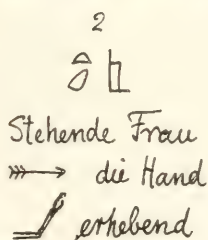 2
Stehende Frau
die Hand
erhebend